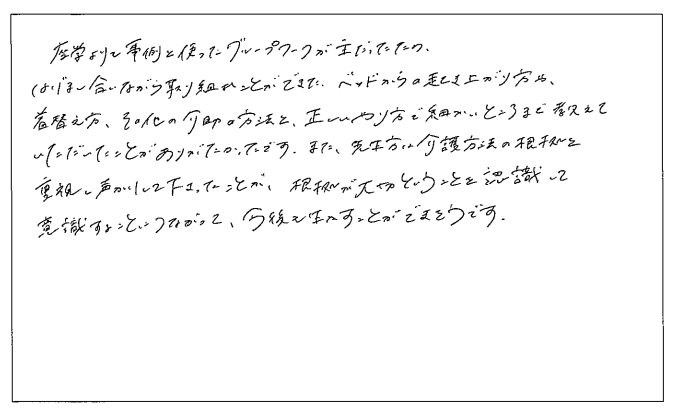 座学よりも事例を使ったグループワークが主だったため、
はげまし合いながら取り組むことができた。ベッドからの起き上がり方や、
着替え方、その他の介助の方法を、正しいやり方で細かいところまで教えて
いただいたことがありがたかったです。また、先生方は介護方法の根拠を
重視し声かけして下さったことが、根拠が大切ということを認識して
意識することにつながって、今後も生かすことができそうです。